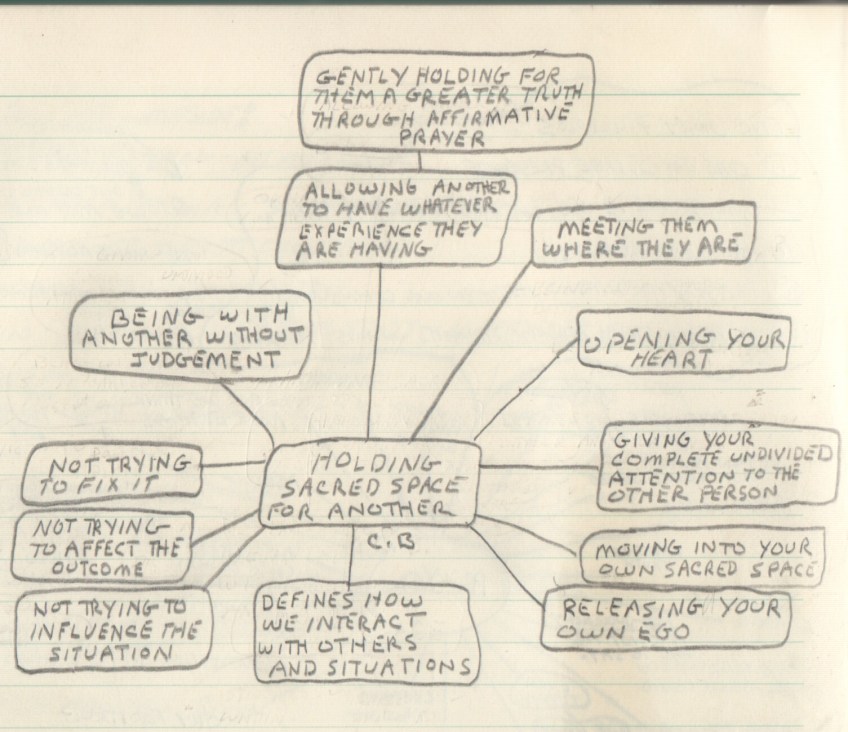 GENTLY HOLDING FOR
THEM A GREATER TRUTH
THROUGH AFFIRMATIVE
PRAYER
ALLOWING ANOTHER
TO HAVE WHATEVER
EXPERIENCE THEY
ARE HAVING
MEETING THEM
WHERE THEY ARE
BEING WITH
ANOTHER WITHOUT
JUDGEMENT
OPENING YOUR
HEART
NOT TRYING
TO FIX IT
HOLDING
SACRED SPACE
FOR ANOTHER
C.B
GIVING YOUR
COMPLETE UNDIVIDED
ATTENTION TO THE
OTHER PERSON
NOT TRYING
TO AFFECT THE
OUTCOME
MOVING INTO YOUR
OWN SACRED SPACE
NOT TRYING TO
INFLUENCE THE
SITUATION
DEFINES HOW
WE INTERACT
WITH OTHERS
AND SITUATIONS
RELEASING YOUR
OWN EGO